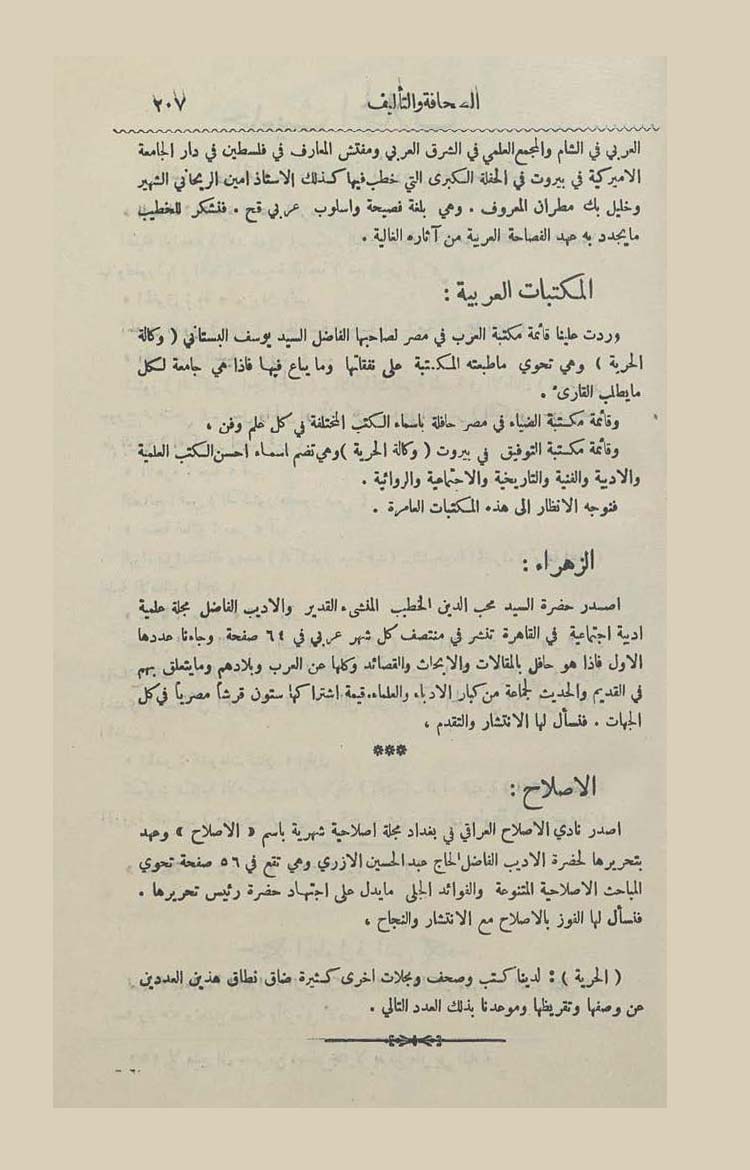 الصحافة والتأليف ٢٠٧
العربي في الشام والمجمع العلمي في الشرق العربي ومفتش المعارف في فلسطين في دار الجامعة
الاميركية في بيروت في الحفلة الكبرى التي خطب فيها كذلك الاستاذ امين الريحاني الشهير
وخليل بك مطران المعروف . وهي بلغة فصيحة واسلوب عربي قح . فنشكر للخطيب
مايجدد به عهد الفصاحة العربية من آثاره الغالية .
المكتبات العربية :
وردت علينا قائمة مكتبة العرب في مصر لصاحبها الفاضل السيد يوسف البستاني ( وكالة
الحرية ) وهي تحوي ماطبعته المكتبة على نفقاتها وما يباع فيها فاذا هي جامعة لكل
مايطلب القارىء .
وقائمة مكتبة الضياء في مصر حافلة باسماء الكتب المختلفة في كل علم وفن ،
وقائمة مكتبة التوفيق في بيروت ( وكالة الحرية ) وهي تضم اسماء احسن الكتب العلمية
والادبية والفنية والتاريخية والاجتماعية والروائية .
فنوجه الانظار الى هذه المكتبات العامرة .
الزهراء :
اصدر حضرة السيد محب الدين الخطيب المنشىء القدير والاديب الفاضل مجلة علمية
ادبية اجتماعية في القاهرة تنشر في منتصف كل شهر عربي في ٦٤ صفحة وجاءنا عددها
الاول فاذا هو حافل بالمقالات والابحاث والقصائد وكلها عن العرب وبلادهم ومايتعلق بهم
في القديم والحديث لجماعة من كبار الادباء والعلماء.قيمة اشتراكها ستون قرشاً مصرياً في كل
الجهات . فنسأل لها الانتشار والتقدم ،
***
الاصلاح :
اصدر نادي الاصلاح العراقي في بغداد مجلة اصلاحية شهرية باسم « الاصلاح » وعهد
بتحريرها لحضرة الاديب الفاضل الحاج عبد الحسين الازري وهي تقع في ٥٦ صفحة تحوي
المباحث الاصلاحية المتنوعة والفوائد الجلى مايدل على اجتهاد حضرة رئيس تحريرها .
فنسأل لها الفوز بالاصلاح مع الانتشار والنجاح ،
( الحرية ) : لدينا كتب وصحف ومجلات اخرى كثيرة ضاق نطاق هذين العددين
عن وصفها وتقريظها وموعدنا بذلك العدد التالي .